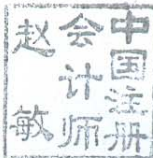 中国注册
会计师
赵敏